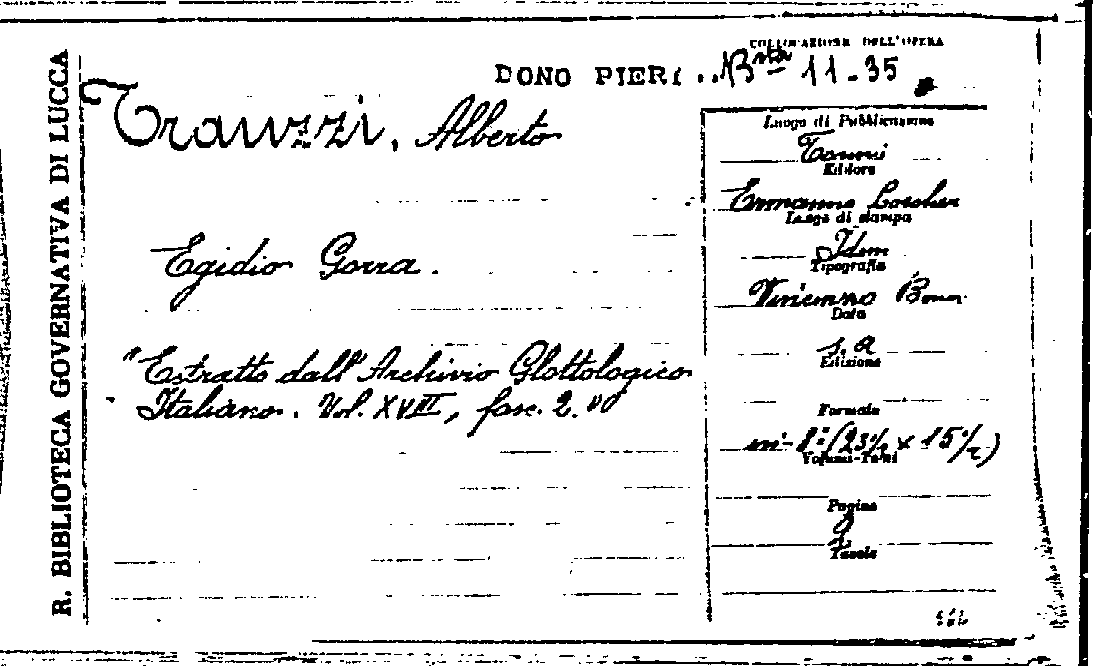 R. BIBLIOTECA GOVERNATIVA DI LUCCA
COLLOCAZIONE DELL'OPERA
DONO PIERI .. Bsta 11-35
Trauzzi, Alberto
Egidio Gorra.
"Estratto dall'Archivio Glottologico
Italiano. Vol. XVIII, fasc. 2."
Luogo di Pubblicazione
Editore
Ermanno Loescher
Luogo di stampa
Idem
Tipografia
Vincenzo Bona
Data
s. a
Edizione
Formato
in-8° (23½ × 15½)
Volumi-Tomi
Pagine
Tavole